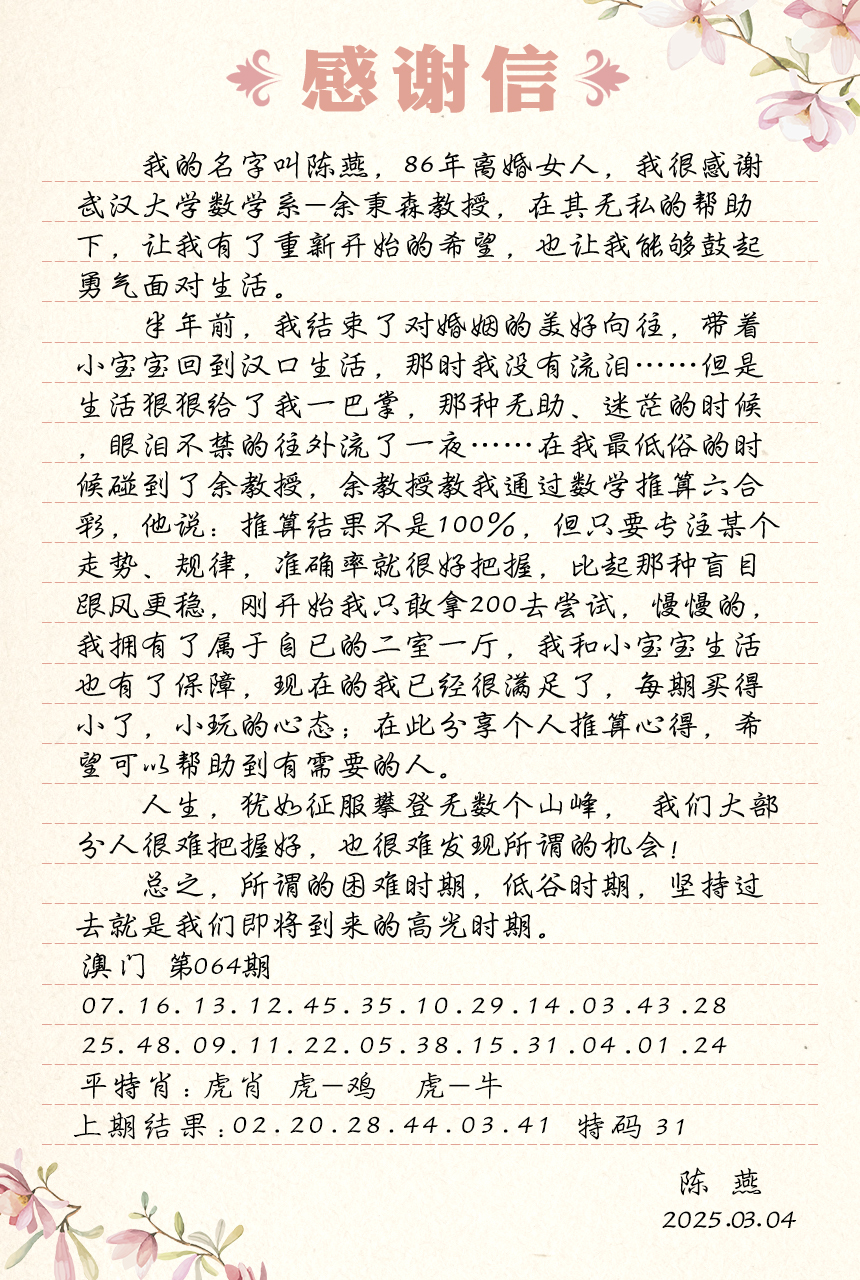 感谢信
我的名字叫陈燕，86年离婚女人，我很感谢
武汉大学数学系—余秉森教授，在其无私的帮助
下，让我有了重新开始的希望，也让我能够鼓起
勇气面对生活。
半年前，我结束了对婚姻的美好向往，带着
小宝宝回到汉口生活，那时我没有流泪……但是
生活狠狠给了我一巴掌，那种无助、迷茫的时候
，眼泪不禁的往外流了一夜……在我最低俗的时
候碰到了余教授，余教授教我通过数学推算六合
彩，他说：推算结果不是100%，但只要专注某个
走势、规律，准确率就很好把握，比起那种盲目
跟风更稳，刚开始我只敢拿200去尝试，慢慢的，
我拥有了属于自已的二室一厅，我和小宝宝生活
也有了保障，现在的我已经很满足了，每期买得
小了，小玩的心态；在此分享个人推算心得，希
望可以帮助到有需要的人。
人生，犹如征服攀登无数个山峰， 我们大部
分人很难把握好，也很难发现所谓的机会！
总之，所谓的困难时期，低谷时期，坚持过
去就是我们即将到来的高光时期。
澳门 第064期
07.16.13.12.45.35.10.29.14.03.43.28
25.48.09.11.22.05.38.15.31.04.01.24
平特肖：虎肖 虎—鸡 虎—牛
上期结果：02.20.28.44.03.41 特码 31
陈 燕
2025.03.04